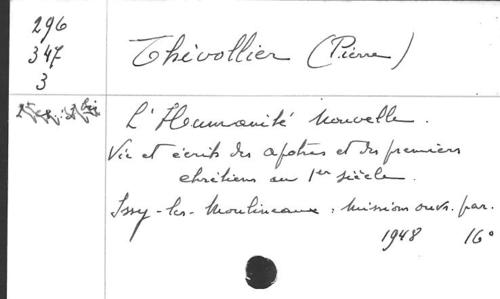 296
347
3
Thivollier (Pierre)
L'Humanité Nouvelle.
Vie et écrits des apôtres et des premiers
chrétiens au 1er siècle.
Issy-les-Moulineaux, Mission ouvr. par.
1948 16°